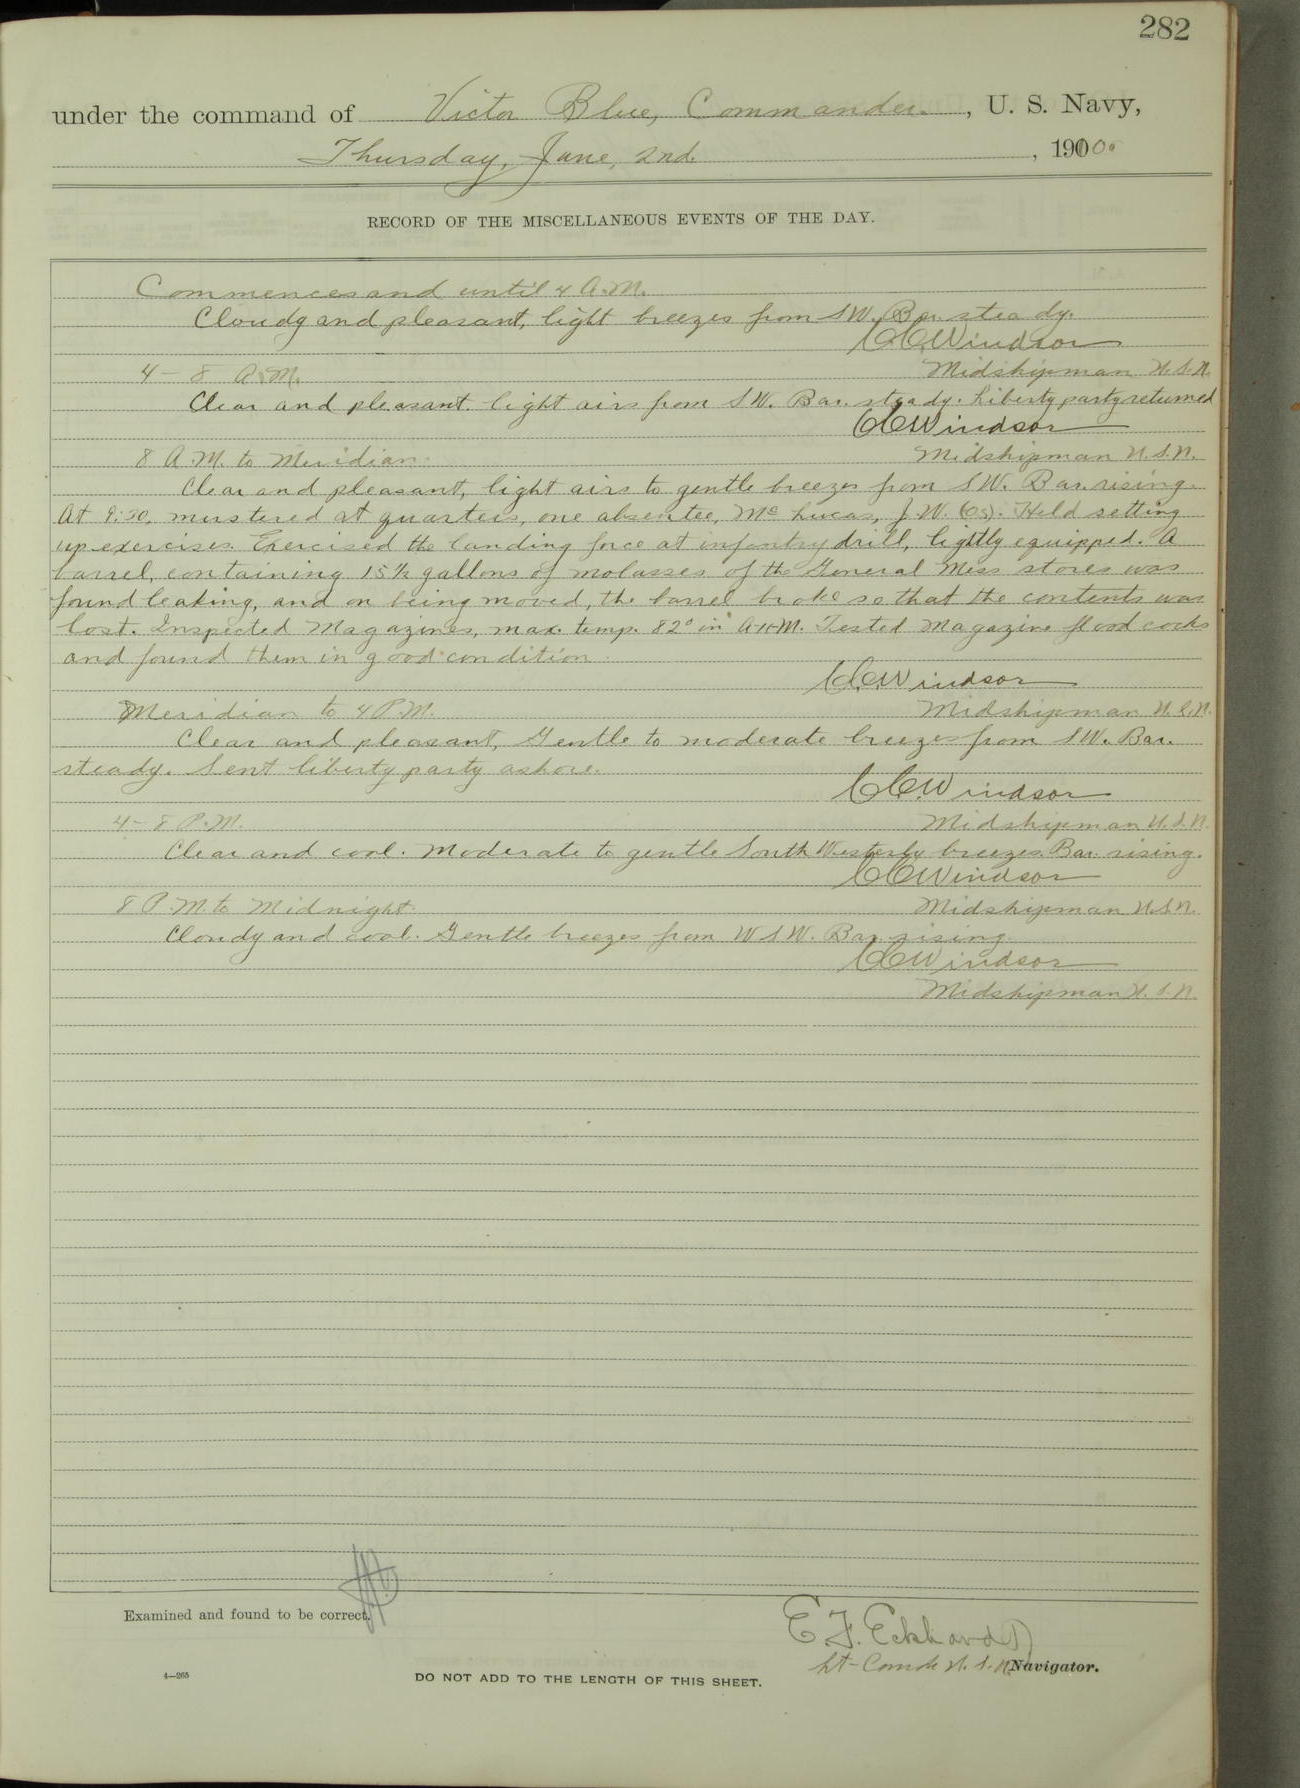 282
under the command of Victor Blue, Commander. , U. S. Navy,
Thursday, June, 2nd. , 1910.
RECORD OF THE MISCELLANEOUS EVENTS OF THE DAY.
Commences and until 4 A.M.
Cloudy and pleasant, light breezes from SW. Bar. steady.
CCWindsor
4 - 8 A.M. Midshipman U.S.N.
Clear and pleasant. light airs from SW. Bar. steady. Liberty party returned
CCWindsor
8 A.M. to Meridian. Midshipman U.S.N.
Clear and pleasant, light airs to gentle breezes from SW. Bar. rising.
At 9:30, mustered at quarters, one absentee, McLucas, J.W. (Os). Held setting
up exercises. Exercised the landing force at infantry drill, lightly equipped. A
barrel, containing 15½ gallons of molasses of the General Mess stores was
found leaking, and on being moved, the barrel broke so that the contents was
lost. Inspected Magazines, max. temp. 82° in A-11-M. Tested Magazine flood cocks
and found them in good condition.
CCWindsor
Meridian to 4 P.M. Midshipman U.S.N.
Clear and pleasant, Gentle to moderate breezes from SW. Bar.
steady. Sent liberty party ashore.
CCWindsor
4 - 8 P.M. Midshipman U.S.N.
Clear and cool. Moderate to gentle South Westerly breezes. Bar. rising.
CCWindsor
8 P.M. to Midnight. Midshipman U.S.N.
Cloudy and cool. Gentle breezes from WSW. Bar. rising.
CCWindsor
Midshipman U.S.N.
Examined and found to be correct.
E.F. Eckhardt
Lt-Comdr U.S.N. Navigator.
4—265
DO NOT ADD TO THE LENGTH OF THIS SHEET.